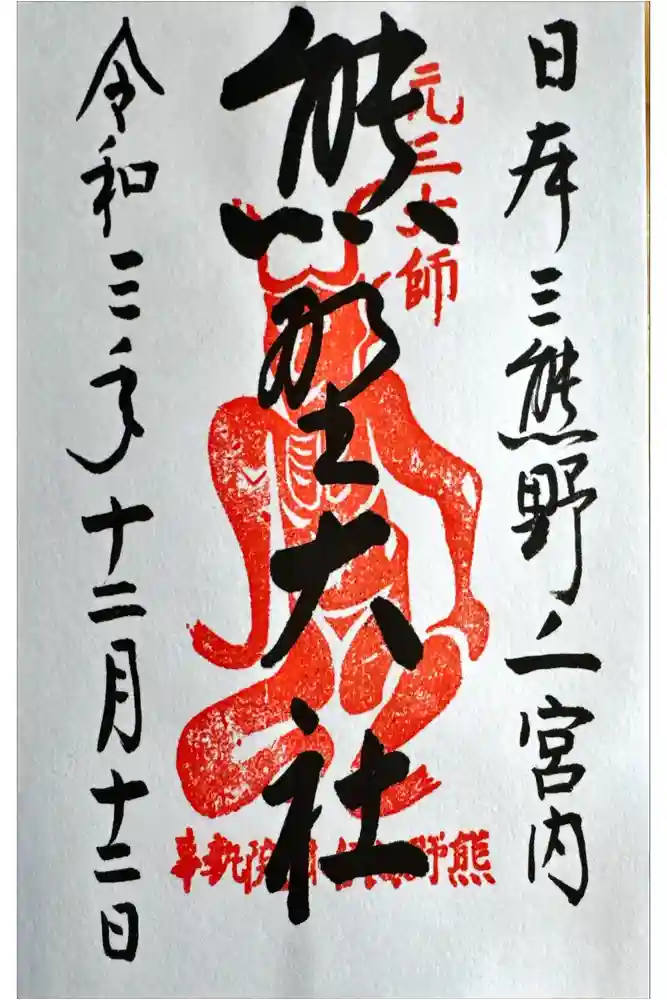 日本三熊野 宮内
熊野大社
元三大師
熊野 院執事
令和三年十二月十二日